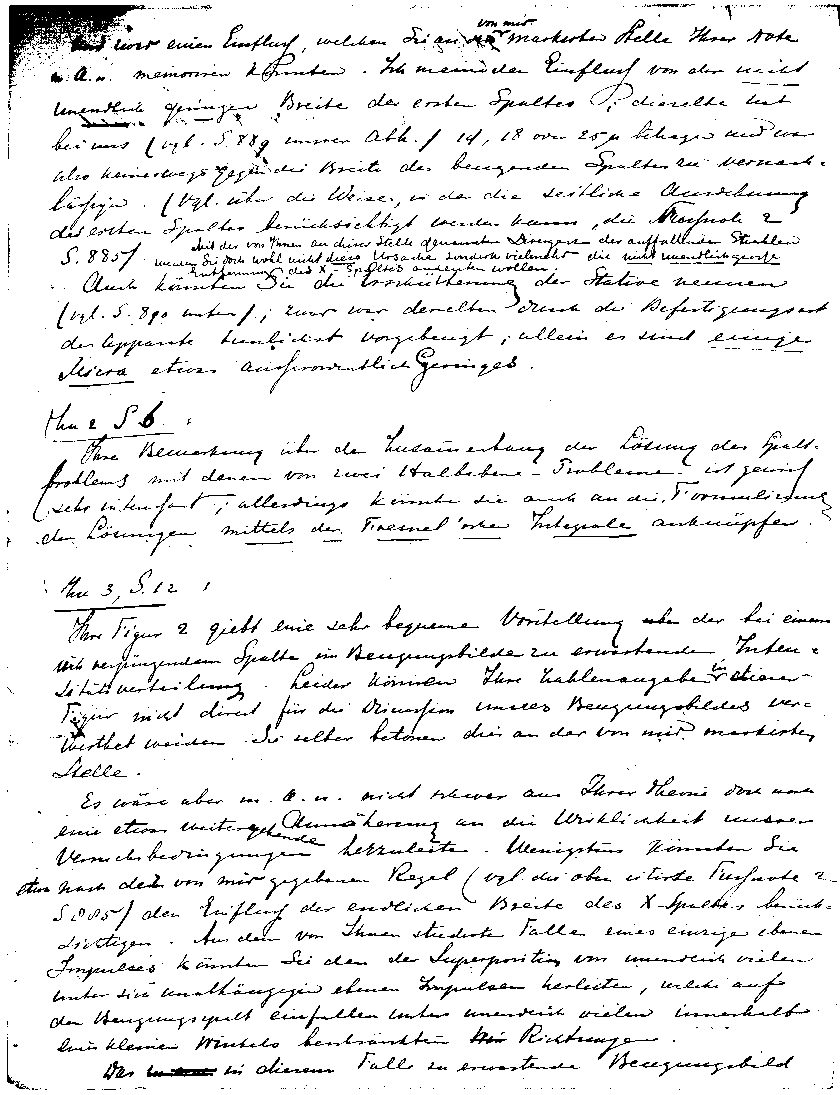 und zwar einen Einfluss, welchen Sie an von mir markirter Stelle Ihrer Note
m. A. n. memoriren könnten. Ich meine den Einfluss von der nicht
unendlich geringen Breite des ersten Spaltes; dieselbe hat
bei uns (vgl. S. 889 unserer Abh.) 14, 18 oder 25 μ betragen und war
also keineswegs gegen die Breite des beugenden Spaltes zu vernach-
lässigen. (Vgl. über die Weise, in der die seitliche Ausdehnung
des ersten Spaltes berücksichtigt werden kann, die Fussnote 2
S. 885)
Mit der von Ihnen an dieser Stelle genannten Divergenz der auffallenden Strahlen
werden Sie doch wohl nicht diese Ursache sondern vielmehr die nicht unendlich grosse
Entfernung des X-Spaltes andeuten wollen.
Auch könnten Sie die Erschütterung der Stative nennen
(vgl. S. 890 unten); zwar war derselben durch die Befestigungsart
der Apparate tunlichst vorgebeugt, allein es sind einige
Micra etwas ausserordentlich Geringes.
Zu 2 S 6:
Ihre Bemerkung über den Zusammenhang der Lösung des Spalt-
problems mit denen von zwei Halbebene-Probleme ist gewiss
sehr interessant; allerdings könnte sie auch an die Formulierung
der Lösungen mittels der Fresnel'schen Integrale anknüpfen.
Zu 3, S. 12:
Ihre Figur 2 giebt eine sehr bequeme Vorstellung über der bei einem
sich verjüngendem Spalte im Beugungsbilde zu erwartende Inten-
sitätsverteilung. Leider können Ihre Zahlenangaben in dieser
Figur nicht direct für die Discussion unseres Beugungsbildes ver-
werthet werden. Sie selber betonen dies an der von mir markirten
Stelle.
Es wäre aber m. A. n. nicht schwer aus Ihrer Theorie doch noch
eine etwas weitergehende Annäherung an die Wirklichkeit unserer
Versuchsbedingungen herzuleiten. Wenigstens könnten Sie
etwa nach der von mir gegebenen Regel (vgl. die oben citirte Fussnote 2
S 885) den Einfluss der endlichen Breite des X-Spaltes berück-
sichtigen. Aus dem von Ihnen studirten Falle eines einzigen ebenen
Impulses könnten Sie dann der Superposition von unendlich vielen
unter sich unabhängigen ebenen Impulsen herleiten, welche auf
den Beugungsspalt einfallen unter unendlich vielen innerhalb
eines kleinen Winkels beschränkten Richtungen.
Das in diesem Falle zu erwartende Beugungsbild